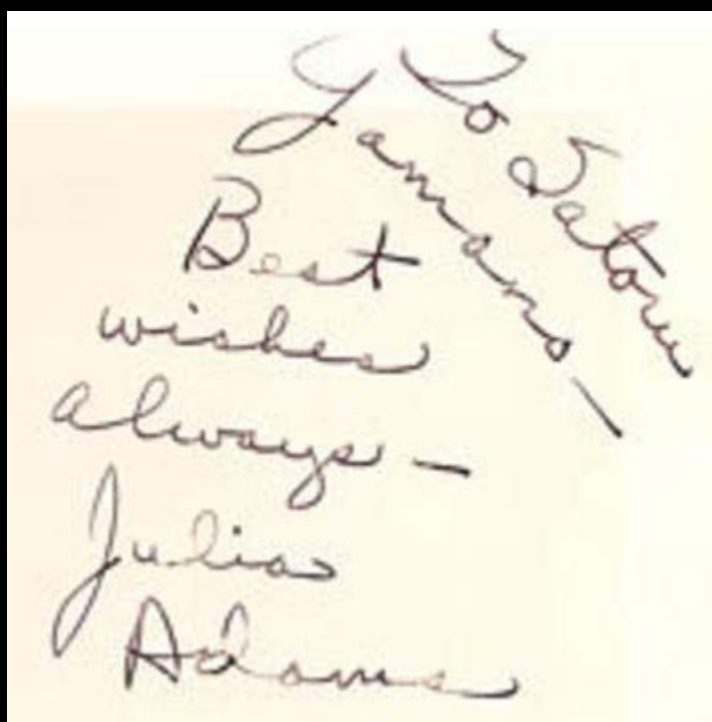 To Satoru
Yamano-
Best
wishes
always-
Julia
Adams